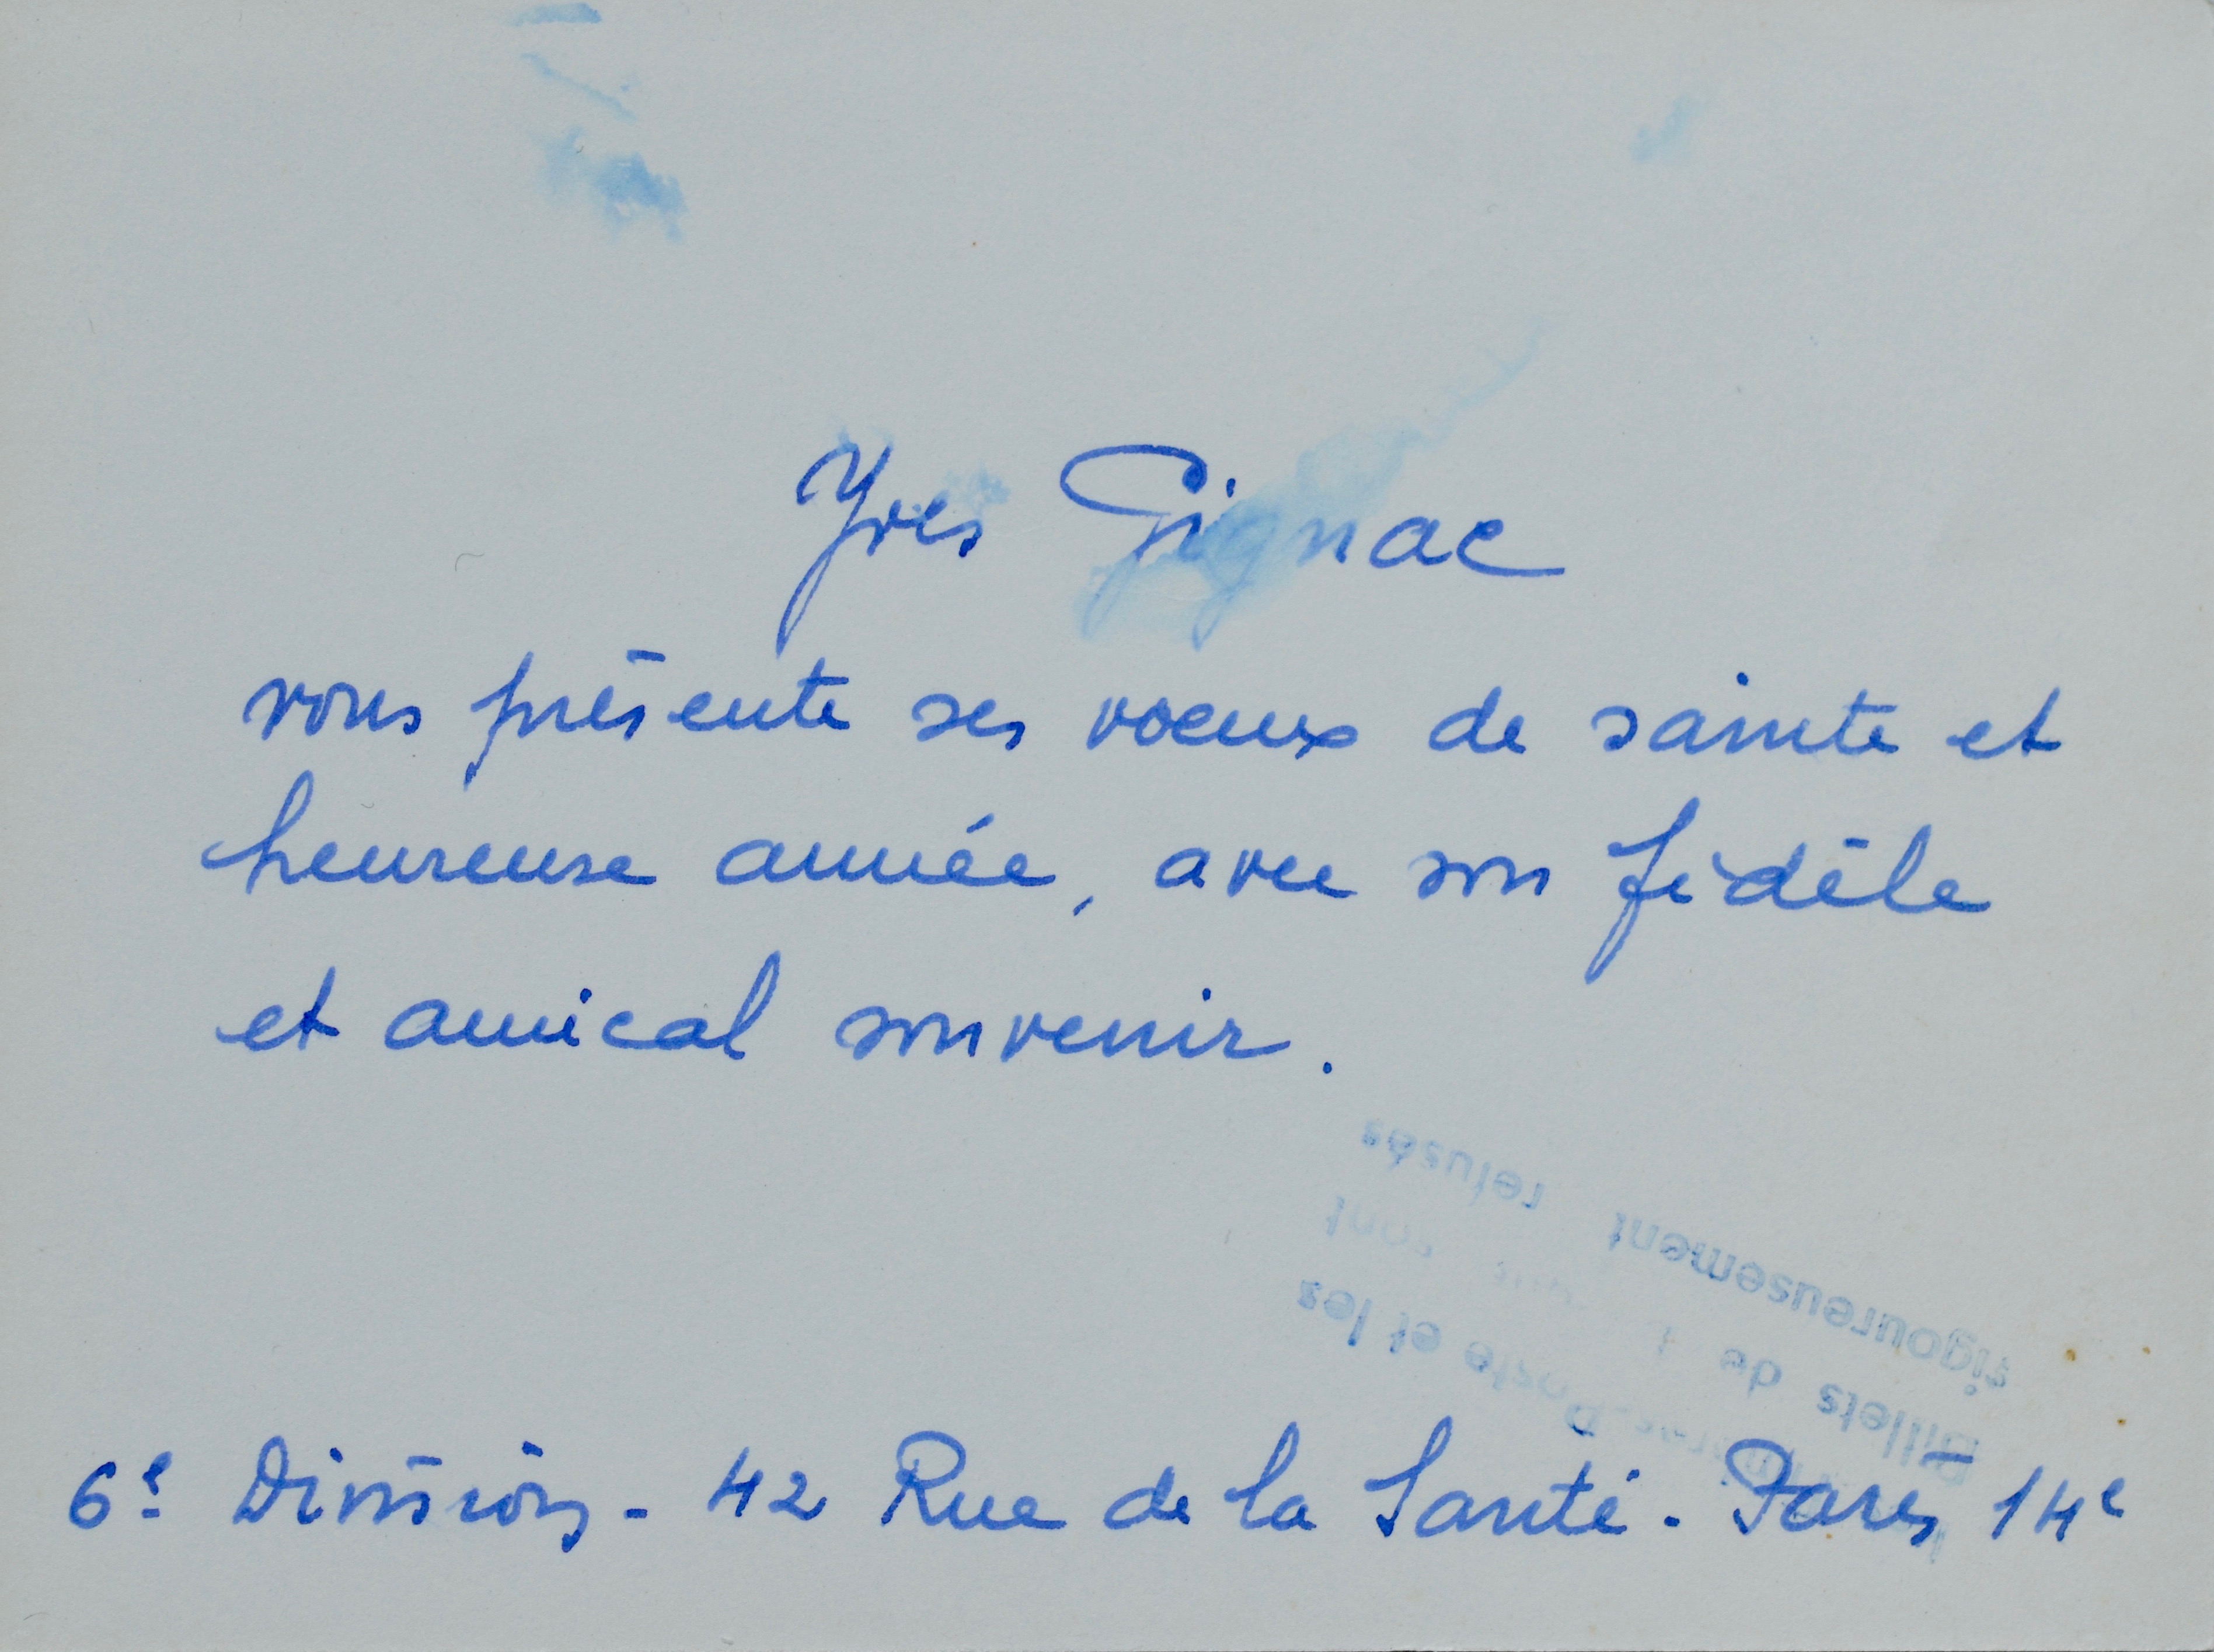 Yves Gignac
vous présente ses voeux de sainte et
heureuse année, avec son fidèle
et amical souvenir.
6e Division - 42 Rue de la Santé - Paris 14e
et les
Billets de sont
rigoureusement refusés